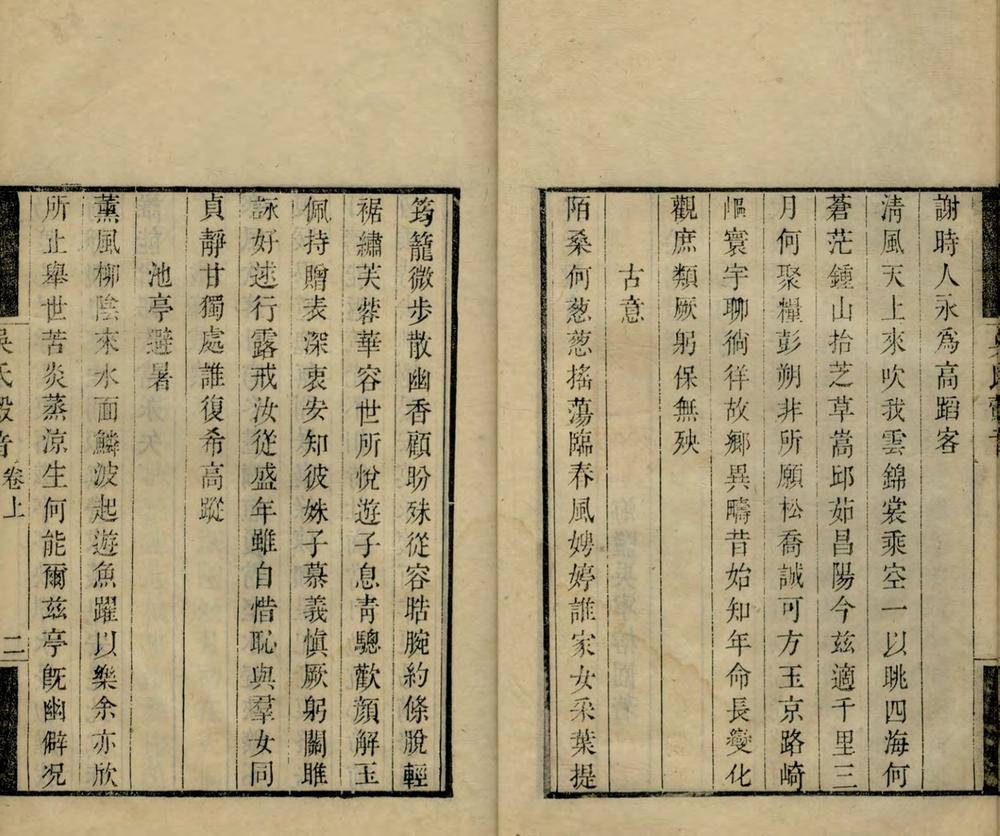 謝時人永為高蹈客
淸風天上來吹我雲錦裳乘空一以眺四海何
蒼茫鍾山拾芝草嵩邱茹昌陽今茲適千里三
月何聚糧彭朔非所願松喬誠可方玉京路崎
嶇寰宇聊徜徉故鄉異疇昔始知年命長變化
觀庶類厥躬保無殃
古意
陌桑何葱葱搖蕩臨春風娉婷誰家女采葉提
筠籠微步散幽香顧盼殊從容晧腕約條脫輕
裾繡芙蓉華容世所悅遊子息靑驄歡顏解玉
佩持贈表深衷安知彼姝子慕義愼厥躬關雎
詠好逑行露戒汝從盛年雖自惜恥與羣女同
貞靜甘獨處誰復希高蹤
池亭避暑
薰風柳陰來水面鱗波起遊魚躍以樂余亦欣
所止舉世苦炎蒸涼生何能爾茲亭旣幽僻况
吳氏 音 卷上 二